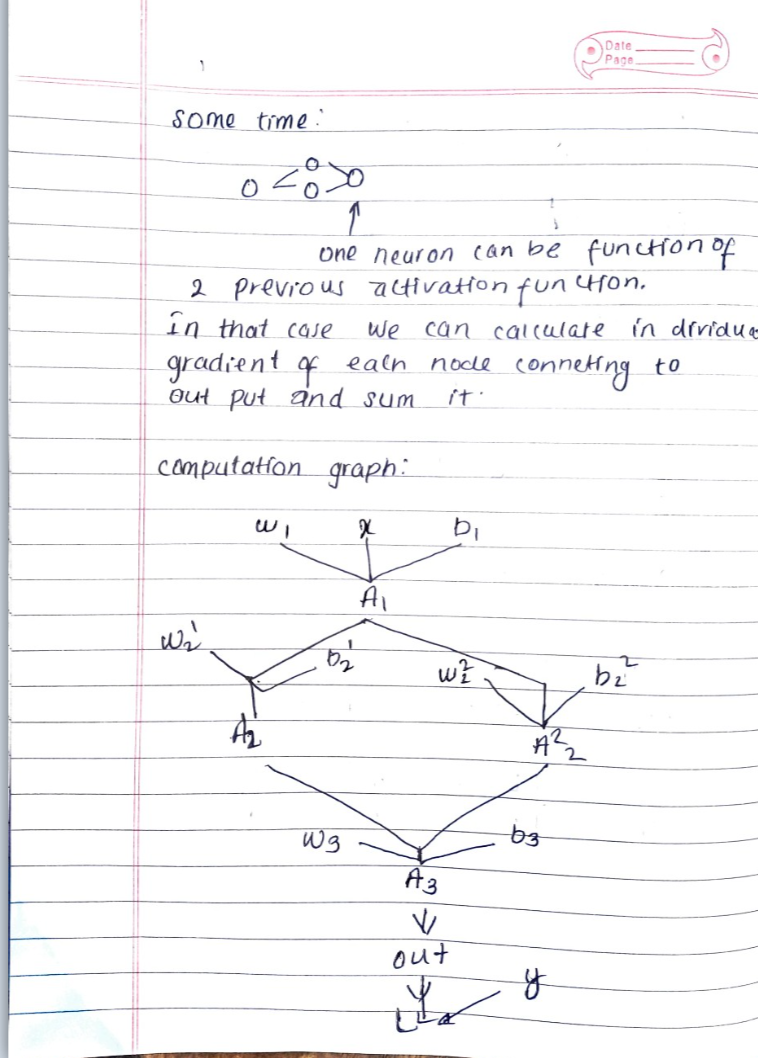 Date
Page
some time:
one neuron can be function of
2 previous activation function.
in that case we can calculate individua
gradient of each node conneting to
out put and sum it.
computation graph:
w1 x b1
A1
w2^1 b2^1 w2^2 b2^2
A2 A^2 2
w3 b3
A3
out
y
L